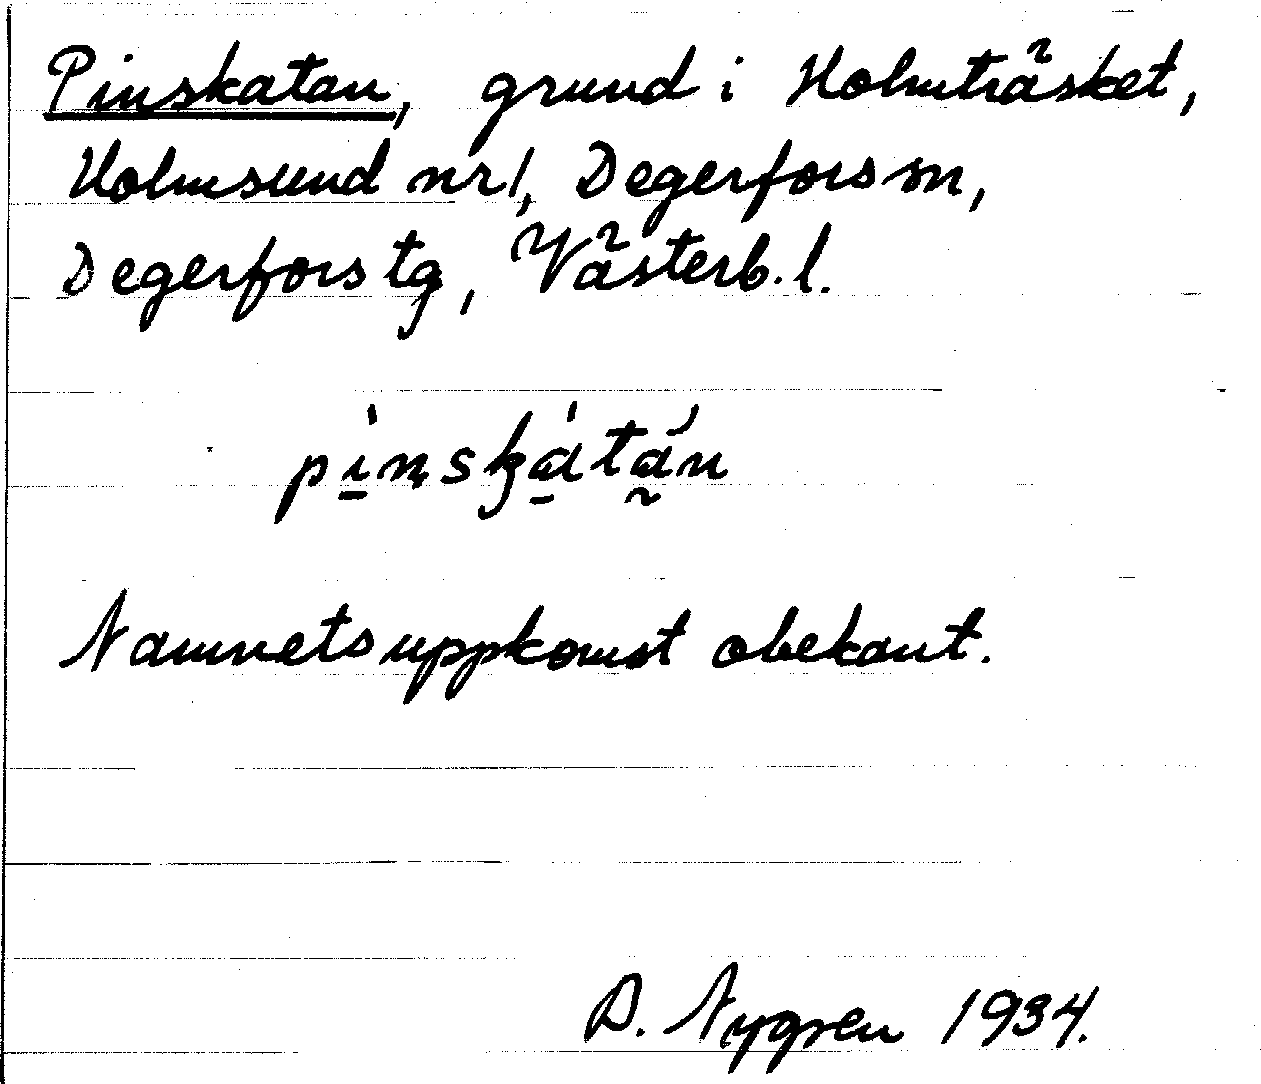 Pinskatan, grund i Holmträsket,
Holmsund nr 1, Degerfors sn,
Degerfors tg, Västerb. l.
pi̠nskа̠tа̰n
Namnets uppkomst obekant.
D. Nygren 1934.